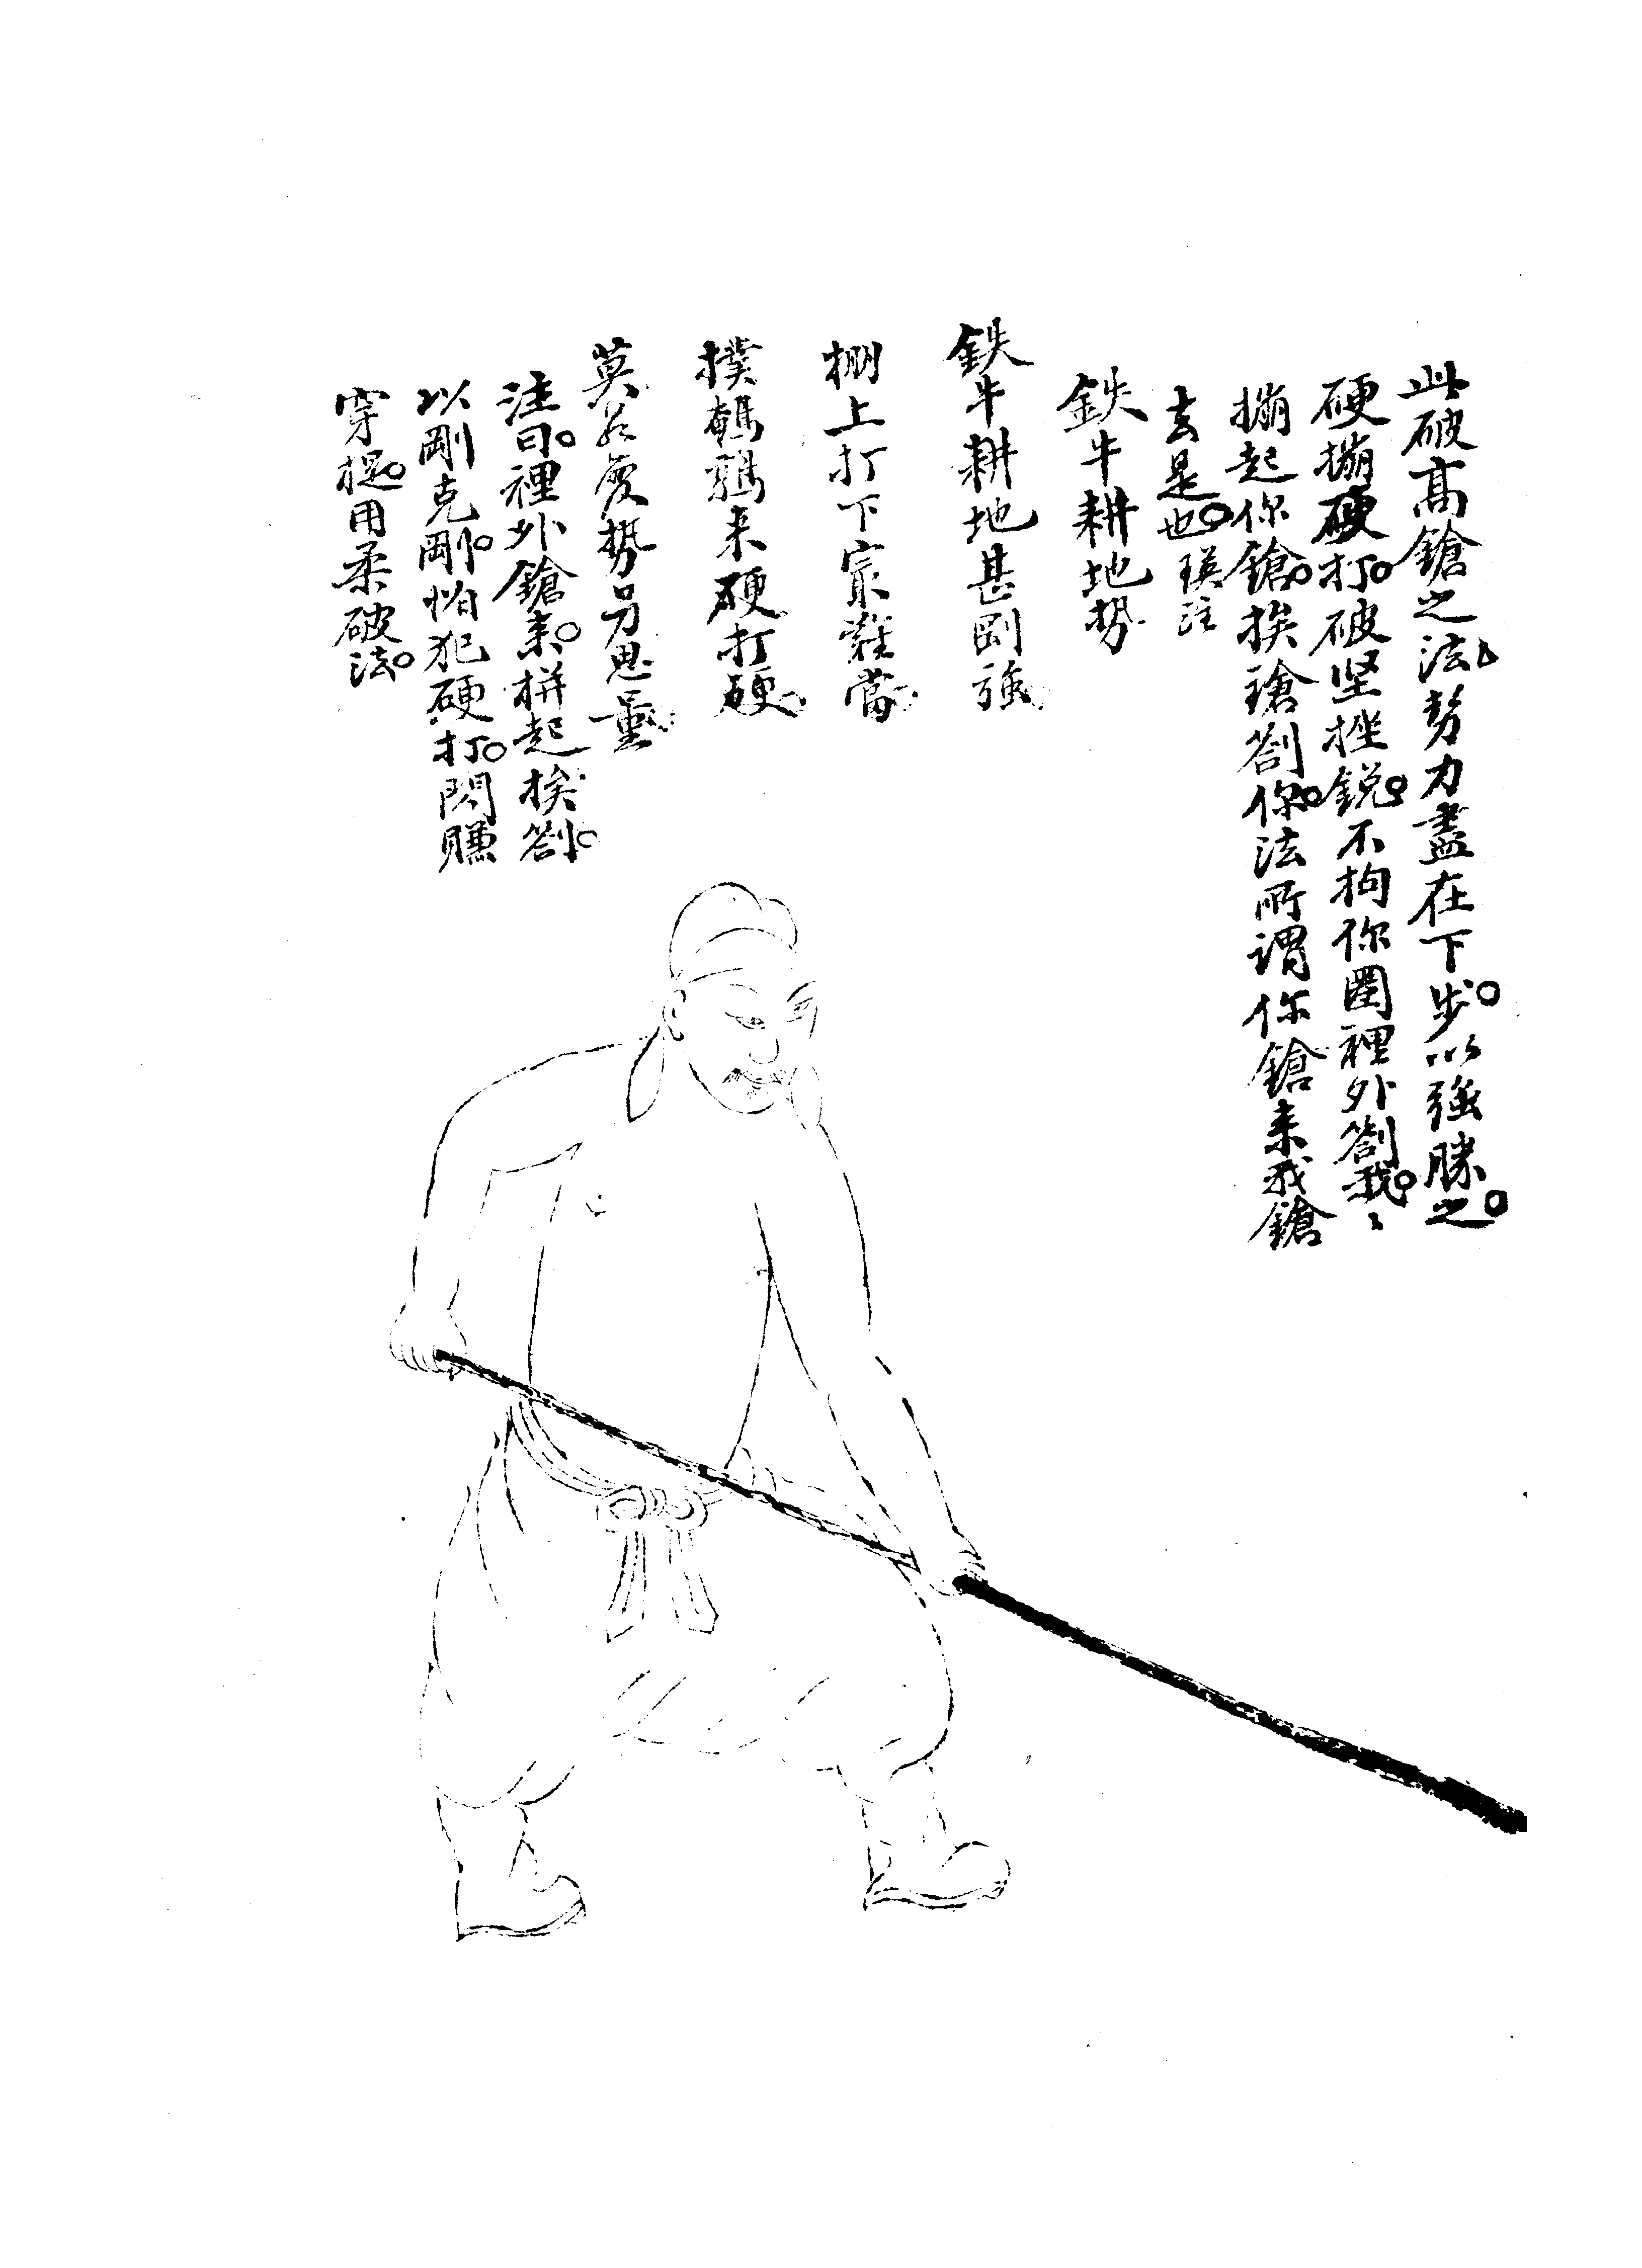 此破高鎗之法勢力盡在下步。以強勝之。
硬搠硬打。破坚挫銳。不拘你圏裡外劄我。〻
搠起你鎗。挨鎗劄你。法所謂你鎗来我鎗
去是也。瑛注
鉄牛耕地势
鉄牛耕地甚剛強
棚上打下宲難當
撲鵪鶉来硬打硬
莫吝變勢另思量
注曰。裡外鎗来。拼起挨劄。
以剛克剛。怕犯硬打。閃賺
穿提。用柔破法。